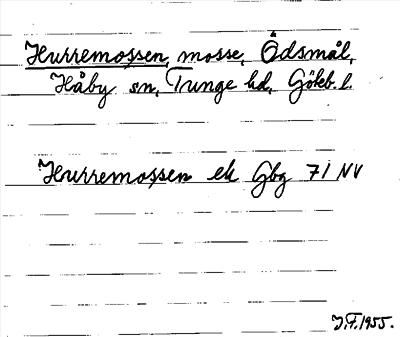 Hurremossen, mosse, Ödsmål,
Håby sn, Tunge hd, Göteb. l.
Hurremossen ek Gbg 7I NV
J.F. 1955.